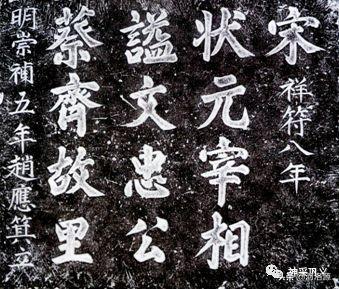 宋祥符八年
状元宰相
謚文忠公
蔡齊故里
明崇禎五年趙應箕立
神采巩义